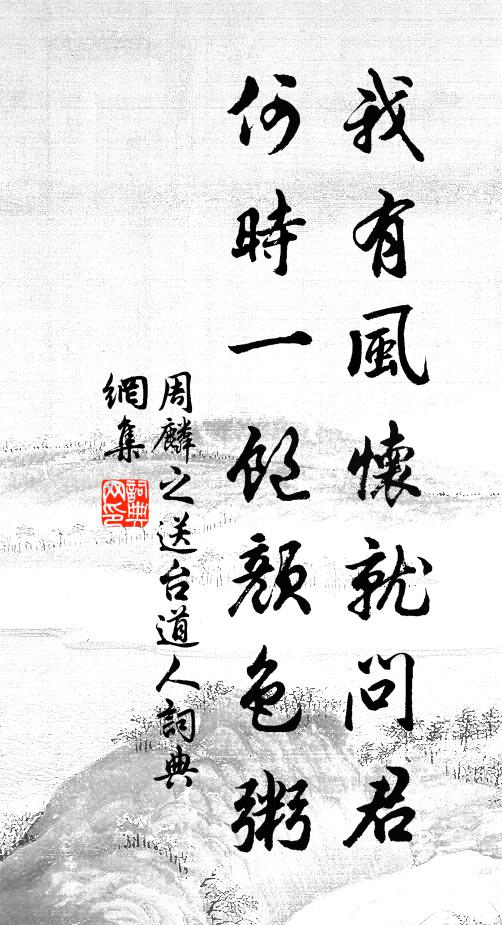 我有風懷就問君
何時一飽顏色粥
周麟之送台道人詞典
網集
詞典
网印